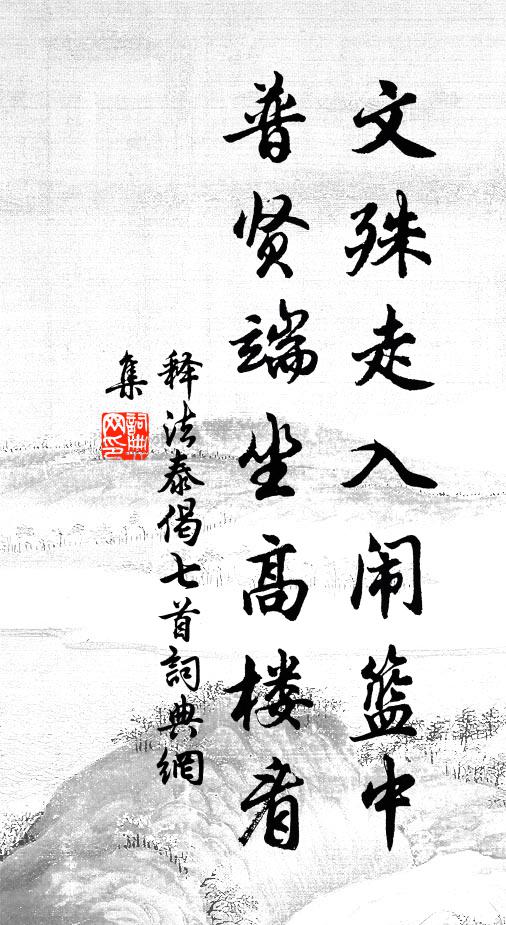 文殊走入闹篮中
普贤端坐高楼看
释法泰偈七首詞典網
集
詞典
网印